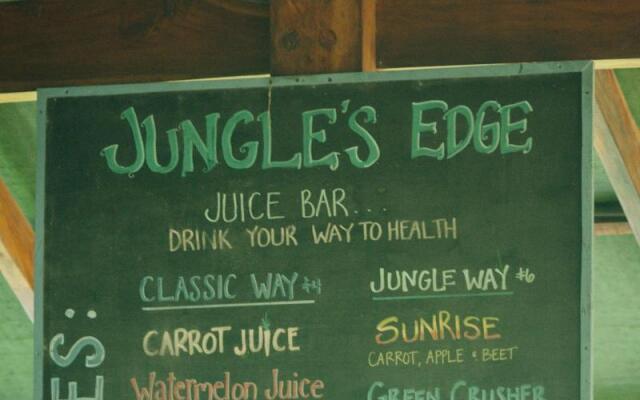 JUNGLE'S EDGE
JUICE BAR...
DRINK YOUR WAY TO HEALTH
CLASSIC WAY $4
CARROT JUICE
Watermelon Juice
JUNGLE WAY $6
SUNRISE
CARROT, APPLE & BEET
GREEN CRUSHER
ES: